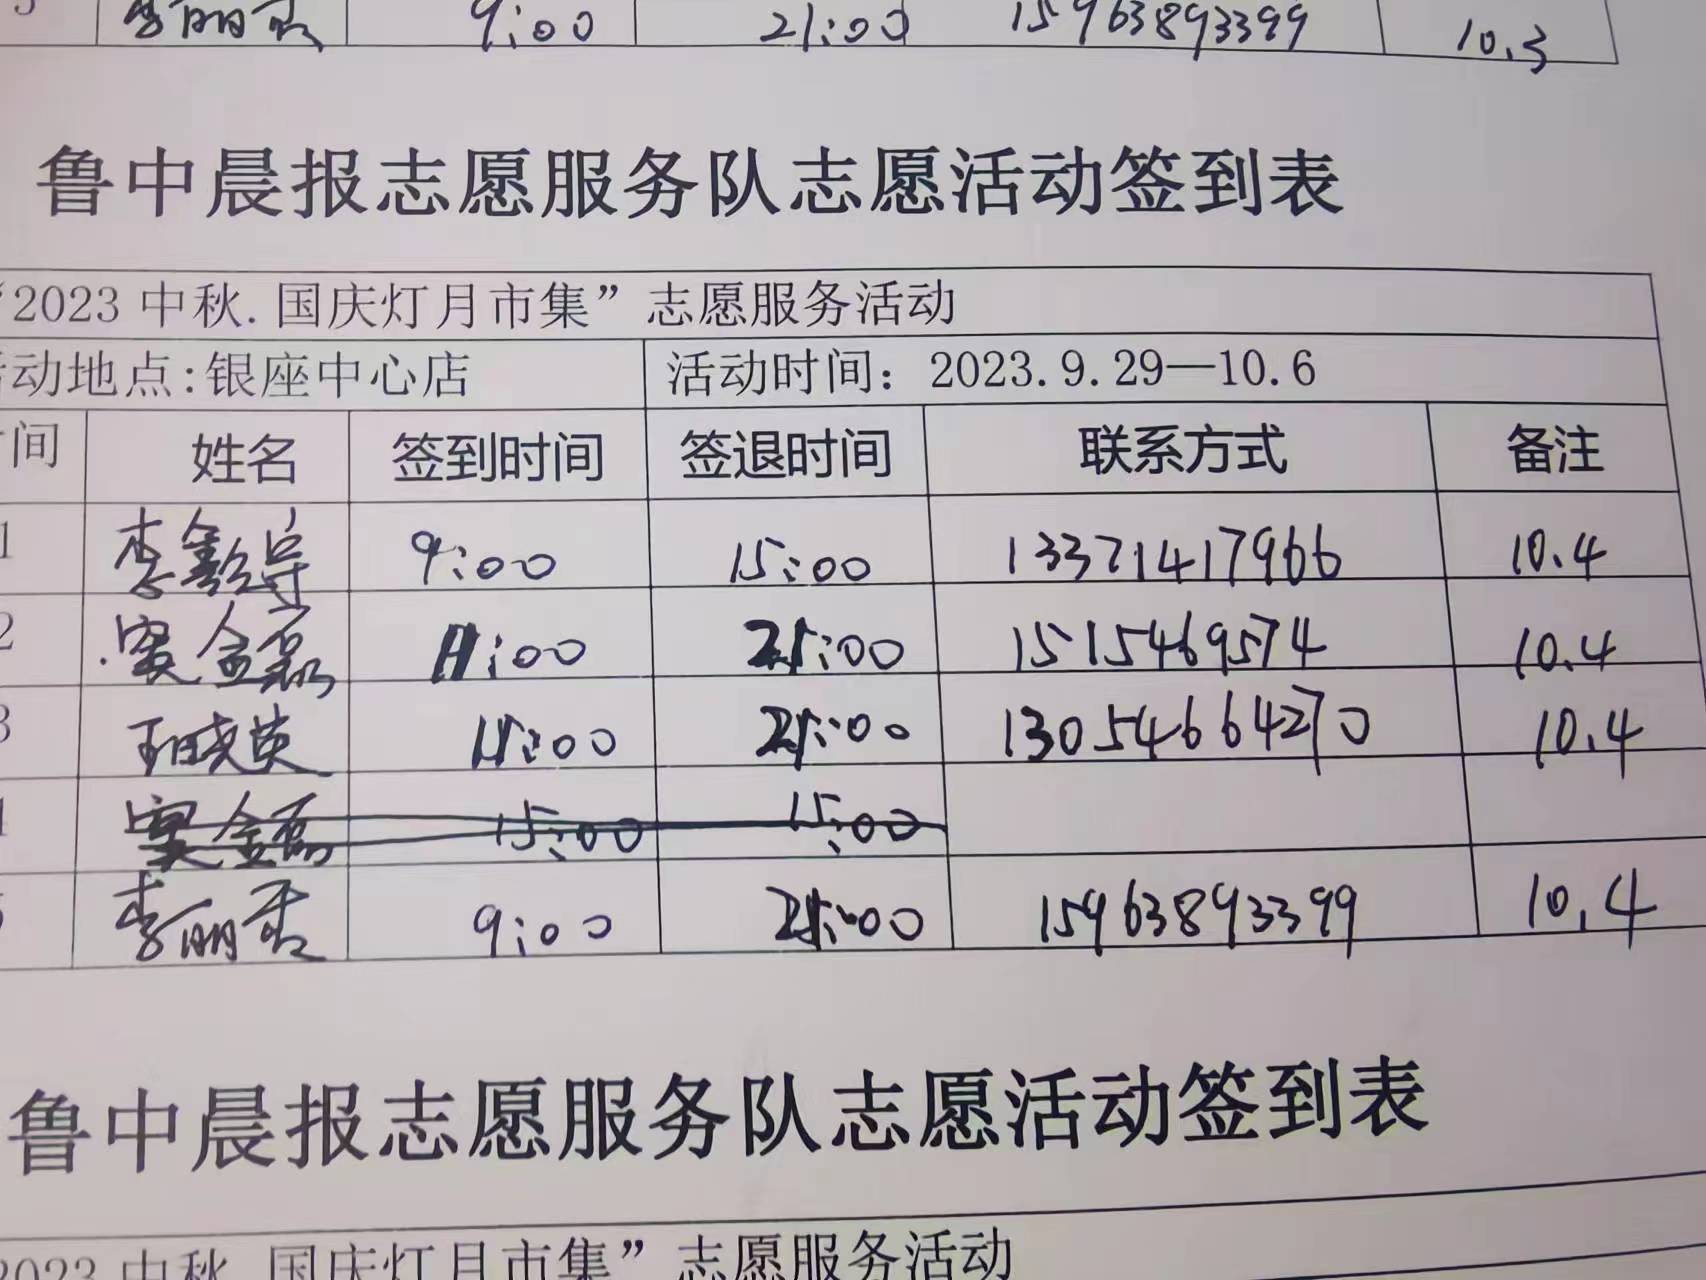 李丽秀 9:00 21:00 15963893399 10.3
鲁中晨报志愿服务队志愿活动签到表
“2023 中秋.国庆灯月市集”志愿服务活动
动地点:银座中心店 活动时间：2023.9.29—10.6
间 姓名 签到时间 签退时间 联系方式 备注
1 李鑫宇 9:00 15:00 13371417966 10.4
2 窦金磊 11:00 21:00 1515469574 10.4
3 王晓英 15:00 21:00 13054664270 10.4
窦金磊 15:00 15:00
5 李丽秀 9:00 21:00 15963893399 10.4
鲁中晨报志愿服务队志愿活动签到表
2023 中秋.国庆灯月市集”志愿服务活动